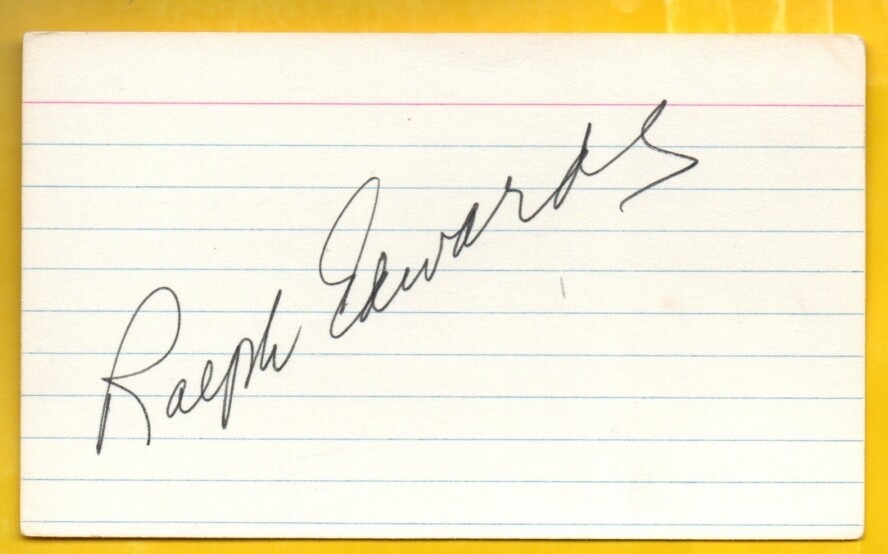 Ralph Edwards